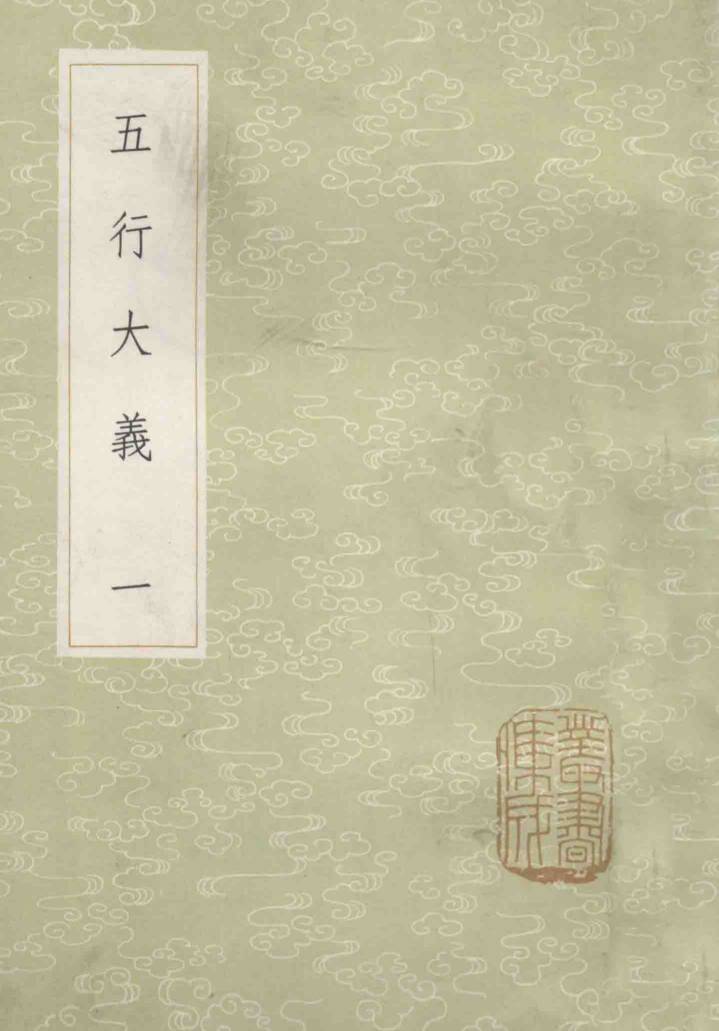 五行大義 一
叢書
集成